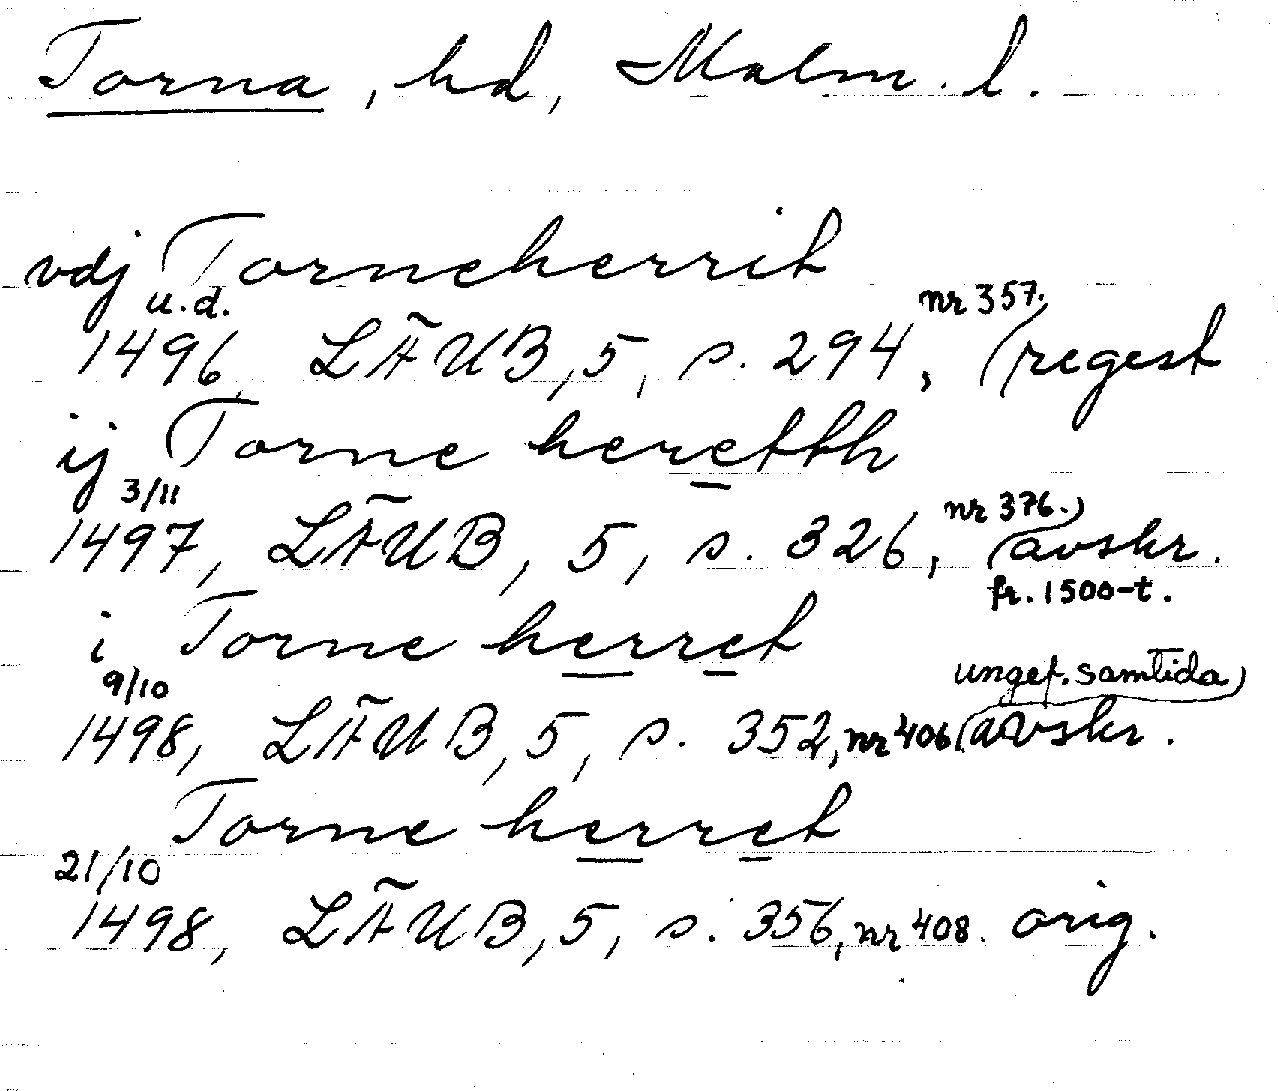 Torna, hd, Malm. l.
vdj Torneherrit
u.d.
1496, LÄUB, 5, s. 294, nr 357. (regest
ij Torne heretth
3/11
1497, LÄUB, 5, s. 326, nr 376.) (avskr.
fr. 1500-t.
i Torne herret
9/10 ungef. samtida)
1498, LÄUB, 5, s. 352, nr 406 (avskr.
Torne herret
21/10
1498, LÄUB, 5, s. 356, nr 408. orig.